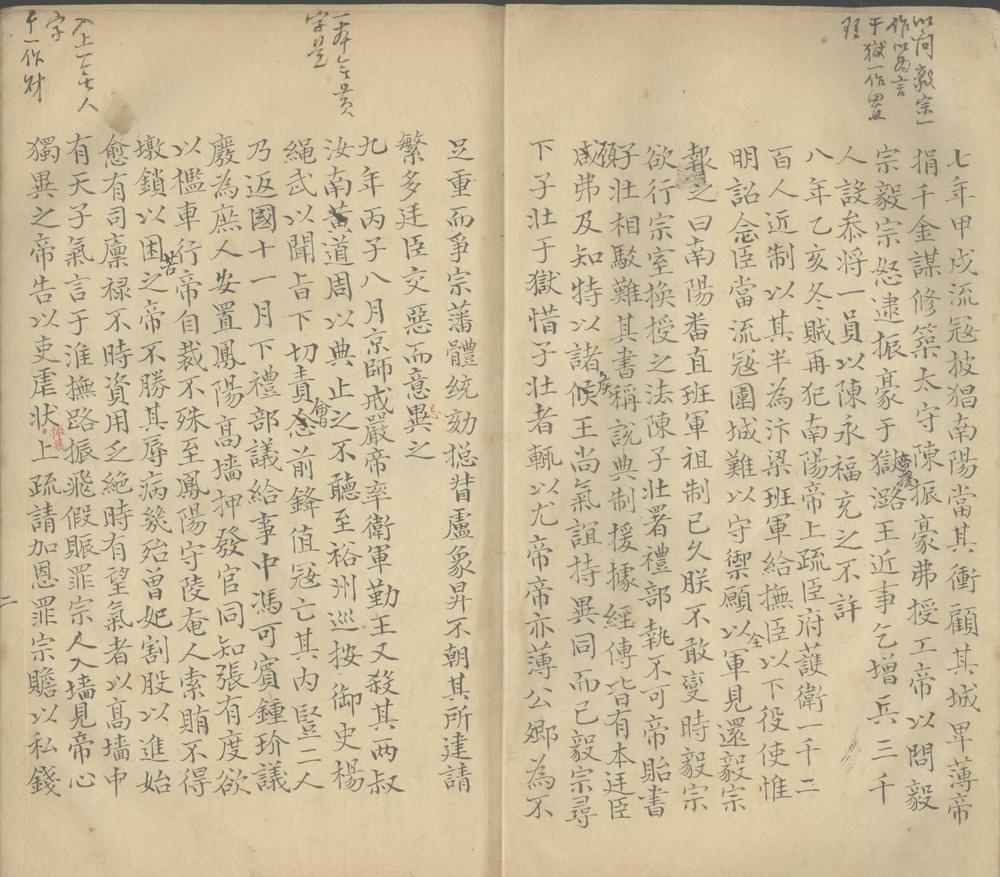 以問毅宗一
作以為言
于獄一作置
理
七年甲戌流寇披猖南陽當其衝顧其城卑薄帝
捐千金謀修築太守陳振豪弗授工帝以問毅
宗毅宗怒逮振豪于獄潞王近事乞增兵三千
人設叅將一員以陳永福充之不許
八年乙亥冬賊再犯南陽帝上疏臣府䕶衛一千二
百人近制以其半為汴梁班軍給撫臣以下役使惟
明詔念臣當流寇圍城難以守禦願以全軍見還毅宗
報之曰南陽畨直班軍祖制已久朕不敢變時毅宗
欲行宗室換授之法陳子壯署禮部執不可帝貽書
子壯相駁難其書稱說典制援據經傳皆有本廷臣
顧弗及知特以諸侯王尚氣誼持異同而已毅宗尋
下子壯于獄惜子壯者輒以尤帝帝亦薄公卿為不
一本無黄
字是
入上一無人
字
于一作財
足重而爭宗藩體統劾揔督盧象昇不朝其所建請
繁多廷臣交惡而意異之
忌
九年丙子八月京師戒嚴帝率衛軍勤王又殺其两叔
汝南黄道周以典止之不聽至裕州巡按御史楊
繩武以聞旨下切責會前鋒值寇亡其內豎二人
乃返國十一月下禮部議給事中馮可賓鍾玠議
廢為庶人安置鳳陽高墙押發官同知張有度欲
以檻車行帝自裁不殊至鳳陽守陵奄人索賄不得
墩鎖以困苦之帝不勝其辱病幾殆曽妃割股以進始
愈有司廩禄不時資用乏絕時有望氣者以高墙中
有天子氣言于淮撫路振飛假賑罪宗人入墙見帝心
獨異之帝告以吏虐狀振飛上疏請加恩罪宗贍以私錢
二